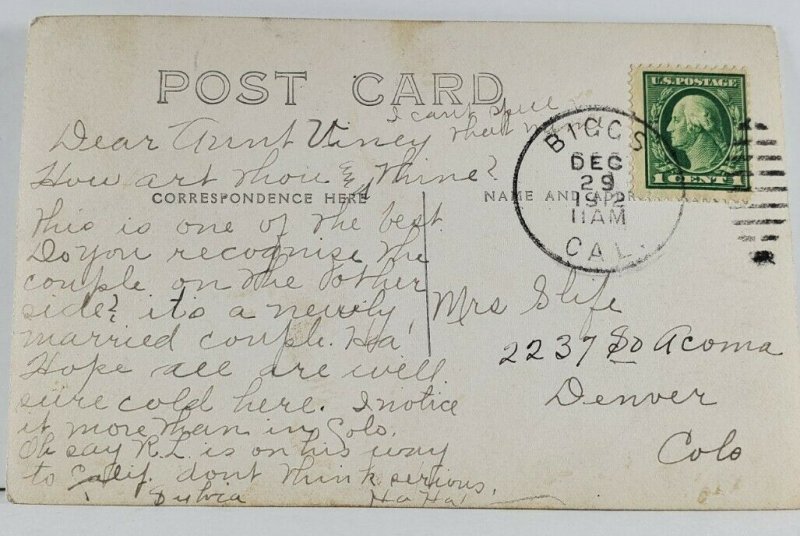 POST CARD
I can't spell
that name
Dear Aunt Viney
How art thou & thine?
CORRESPONDENCE HERE
NAME AND
This is one of the best
Do you recognise the
couple on the other
side? it's a newly
married couple. Ha!
Hope all are well
sure cold here. I notice
it more than in Colo.
Oh say R.L. is on his way
to Calif. dont think serious.
Ha Ha!
BIGGS
DEC
29
1912
11AM
CAL.
U.S. POSTAGE
1 CENT 1
Mrs Slife
2237 So Acoma
Denver
Colo